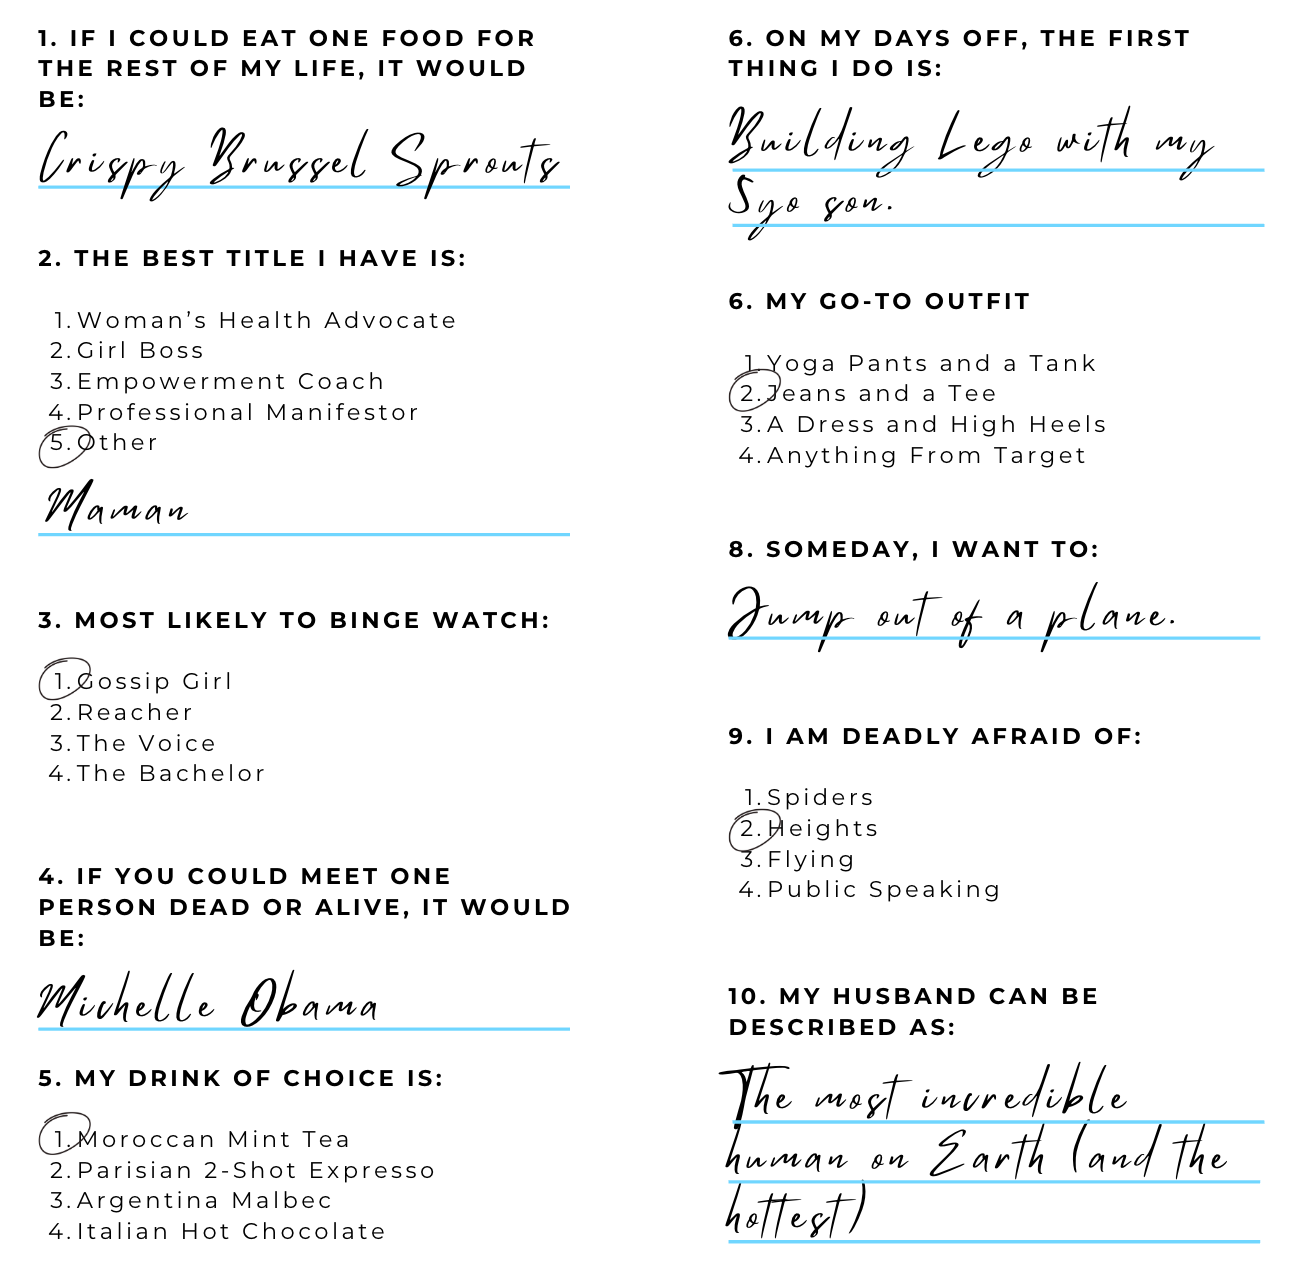 1. IF I COULD EAT ONE FOOD FOR
THE REST OF MY LIFE, IT WOULD
BE:
Crispy Brussel Sprouts
2. THE BEST TITLE I HAVE IS:
1. Woman’s Health Advocate
2. Girl Boss
3. Empowerment Coach
4. Professional Manifestor
5. Other
Maman
3. MOST LIKELY TO BINGE WATCH:
1. Gossip Girl
2. Reacher
3. The Voice
4. The Bachelor
4. IF YOU COULD MEET ONE
PERSON DEAD OR ALIVE, IT WOULD
BE:
Michelle Obama
5. MY DRINK OF CHOICE IS:
1. Moroccan Mint Tea
2. Parisian 2-Shot Expresso
3. Argentina Malbec
4. Italian Hot Chocolate
6. ON MY DAYS OFF, THE FIRST
THING I DO IS:
Building Lego with my
5yo son.
6. MY GO-TO OUTFIT
1. Yoga Pants and a Tank
2. Jeans and a Tee
3. A Dress and High Heels
4. Anything From Target
8. SOMEDAY, I WANT TO:
Jump out of a plane.
9. I AM DEADLY AFRAID OF:
1. Spiders
2. Heights
3. Flying
4. Public Speaking
10. MY HUSBAND CAN BE
DESCRIBED AS:
The most incredible
human on Earth (and the
hottest)